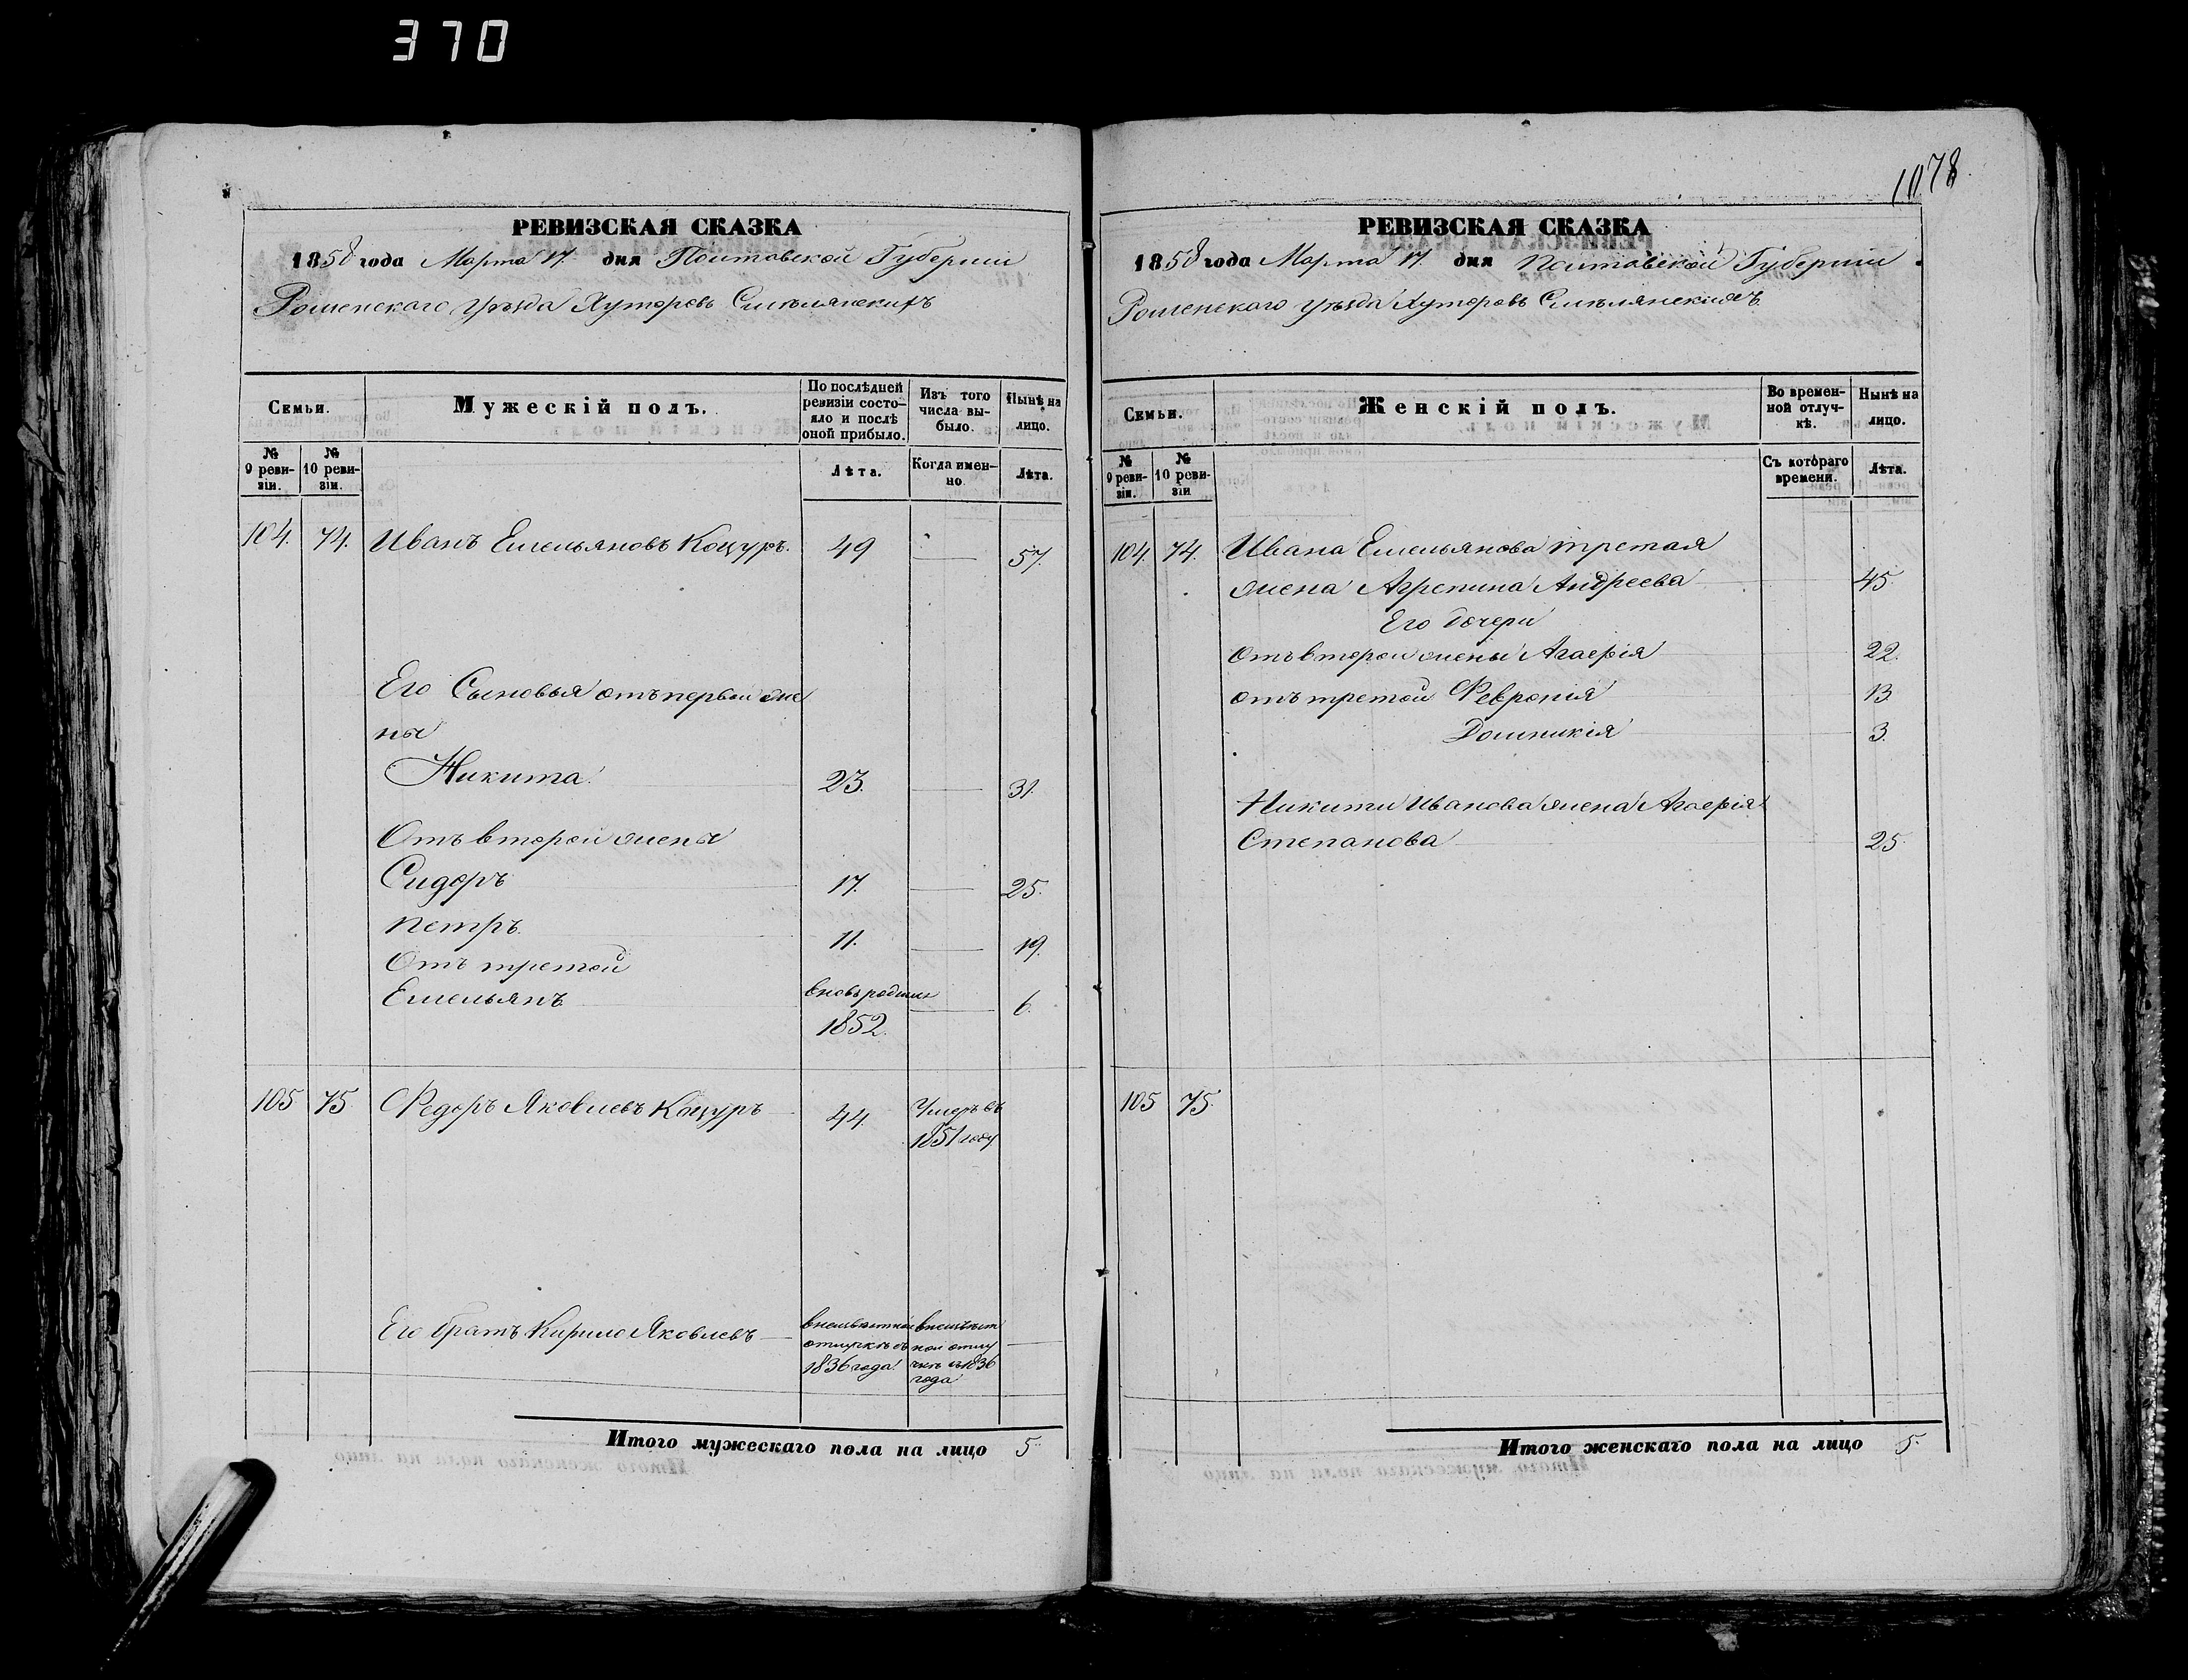 370
1078
РЕВИЗСКАЯ СКАЗКА
1858 года Марта 17. дня Полтавской Губернiи
Роменского Уѣзда Хуторовъ Смѣлянскихъ
Семьи.
Мужескій полъ.
По послѣдней ревизіи состояло и послѣ оной прибыло.
Изъ того числа выбыло.
Нынѣ на лицо.
№ 9 ревизіи.
№ 10 ревизіи.
Лѣта.
Когда именно
Лѣта.
104. 74. Иванъ Емельяновъ Коцуръ. 49 57.
Его Сыновья отъ первой же
ны
Никита 23. 31.
Отъ второй жены
Сидоръ 17. 25.
Петръ. 11. 19.
Отъ третой
Емельянъ вновьродился 6.
1852.
105 75. Федоръ Яковлевъ Коцуръ 44. Умеръ въ
1851 году
Его братъ Кирило Яковлевъ
отлучкѣ съ
1836 года
ной отлу
чкѣ съ 1836
года
Итого мужескаго пола на лицо 5
РЕВИЗСКАЯ СКАЗКА
1858 года Марта 17. дня Полтавской Губернiи
Роменского Уѣзда Хуторовъ Смѣлянскихъ
Семьи.
Женскій полъ.
Во временной отлучкѣ.
Нынѣ на лицо.
№ 9 ревизіи.
№ 10 ревизіи
Съ котораго времени.
Лѣта.
104. 74. Ивана Емельянова третая
жена Агрепина Андреева 45.
Его дочери
Отъ второй жены Агафія 22.
отъ третой Февронія 13.
Домникія 3.
Никиты Иванова жена Агафія
Степанова 25.
105 75.
Итого женскаго пола на лицо 5.